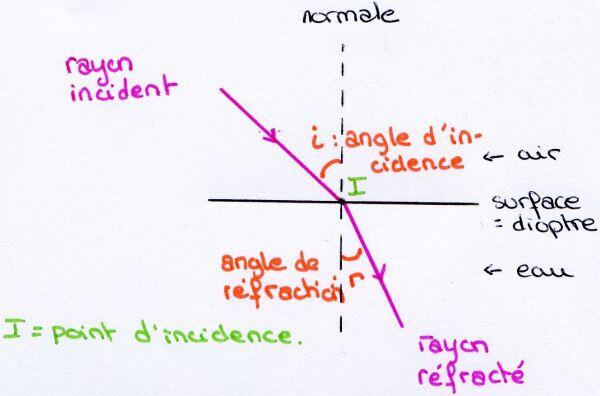 normale
rayon
incident
i : angle d'in-
cidence
← air
I
surface
= dioptre
angle de
réfraction r
← eau
I = point d'incidence.
rayon
réfracté